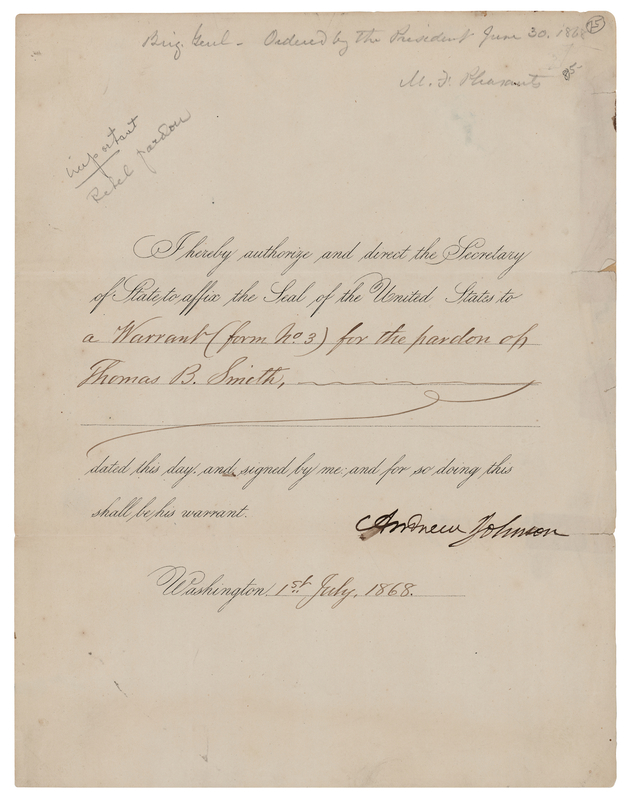 Brig. Genl - Ordered by the President June 30. 1868
25
M. F. Pleasants
95-
important
Rebel pardon
I hereby authorize and direct the Secretary
of State to affix the Seal of the United States to
a Warrant (form No 3) for the pardon of
Thomas B. Smith,
dated this day, and signed by me: and for so doing this
shall be his warrant.
Andrew Johnson
Washington 1st July, 1868.